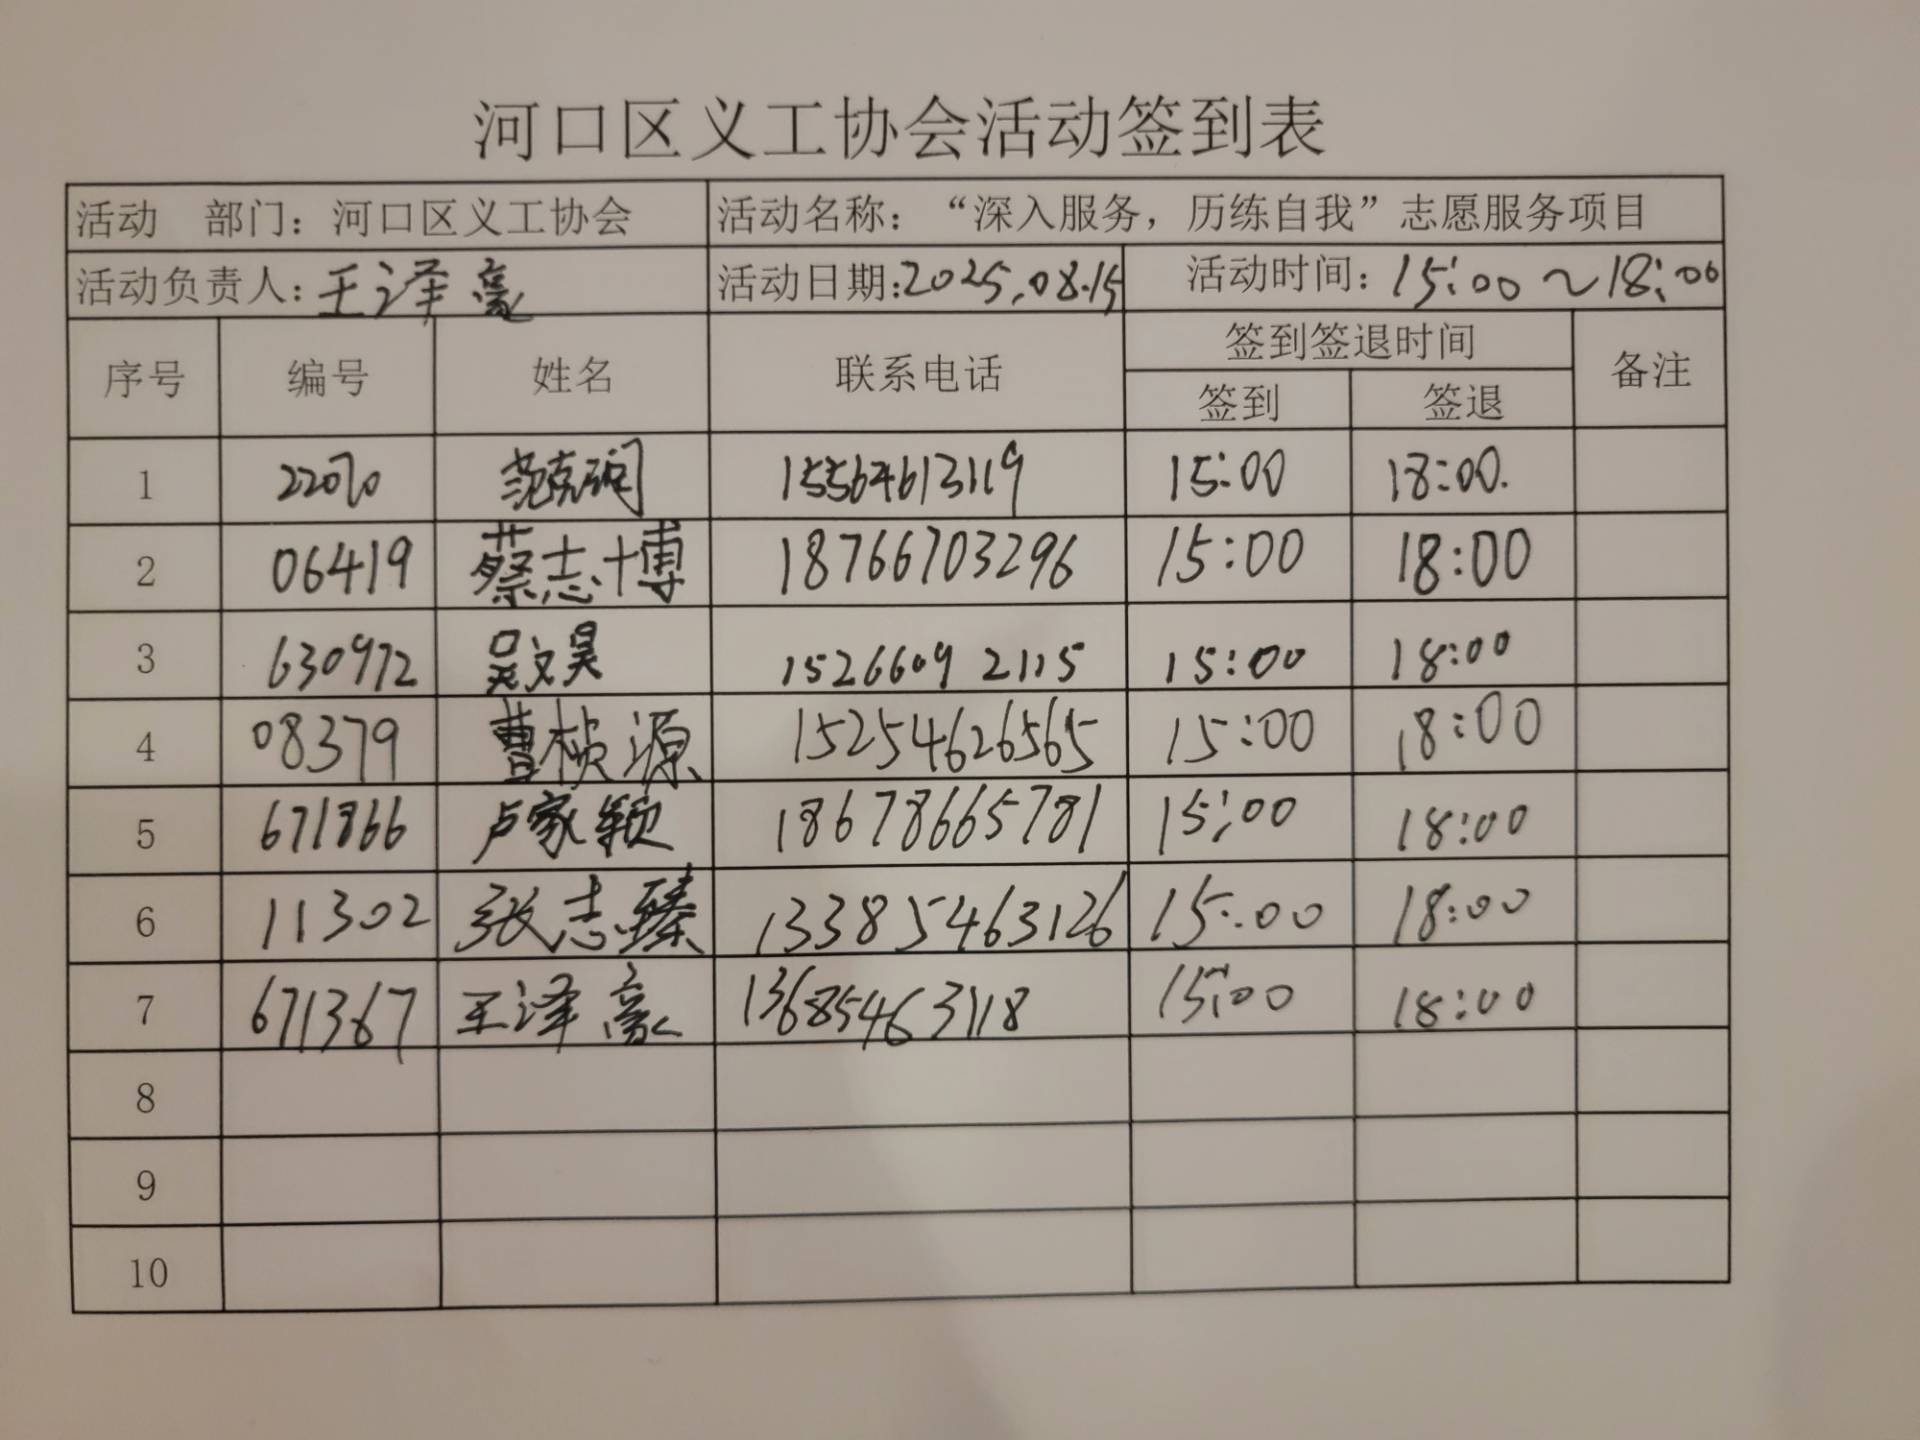 河口区义工协会活动签到表
活动 部门：河口区义工协会 活动名称：“深入服务，历练自我”志愿服务项目
活动负责人：王泽豪 活动日期：2025.08.15 活动时间：15:00～18:00
序号 编号 姓名 联系电话 签到签退时间 备注
签到 签退
1 15564613119 15:00 18:00.
2 06419 蔡志博 18766703296 15:00 18:00
3 630972 吴文昊 15266092115 15:00 18:00
4 08379 曹桢源 15254626565 15:00 18:00
5 671866 卢家颖 18678665781 15:00 18:00
6 11302 张志臻 13385463126 15:00 18:00
7 671367 王泽豪 13685463118 15:00 18:00
8
9
10